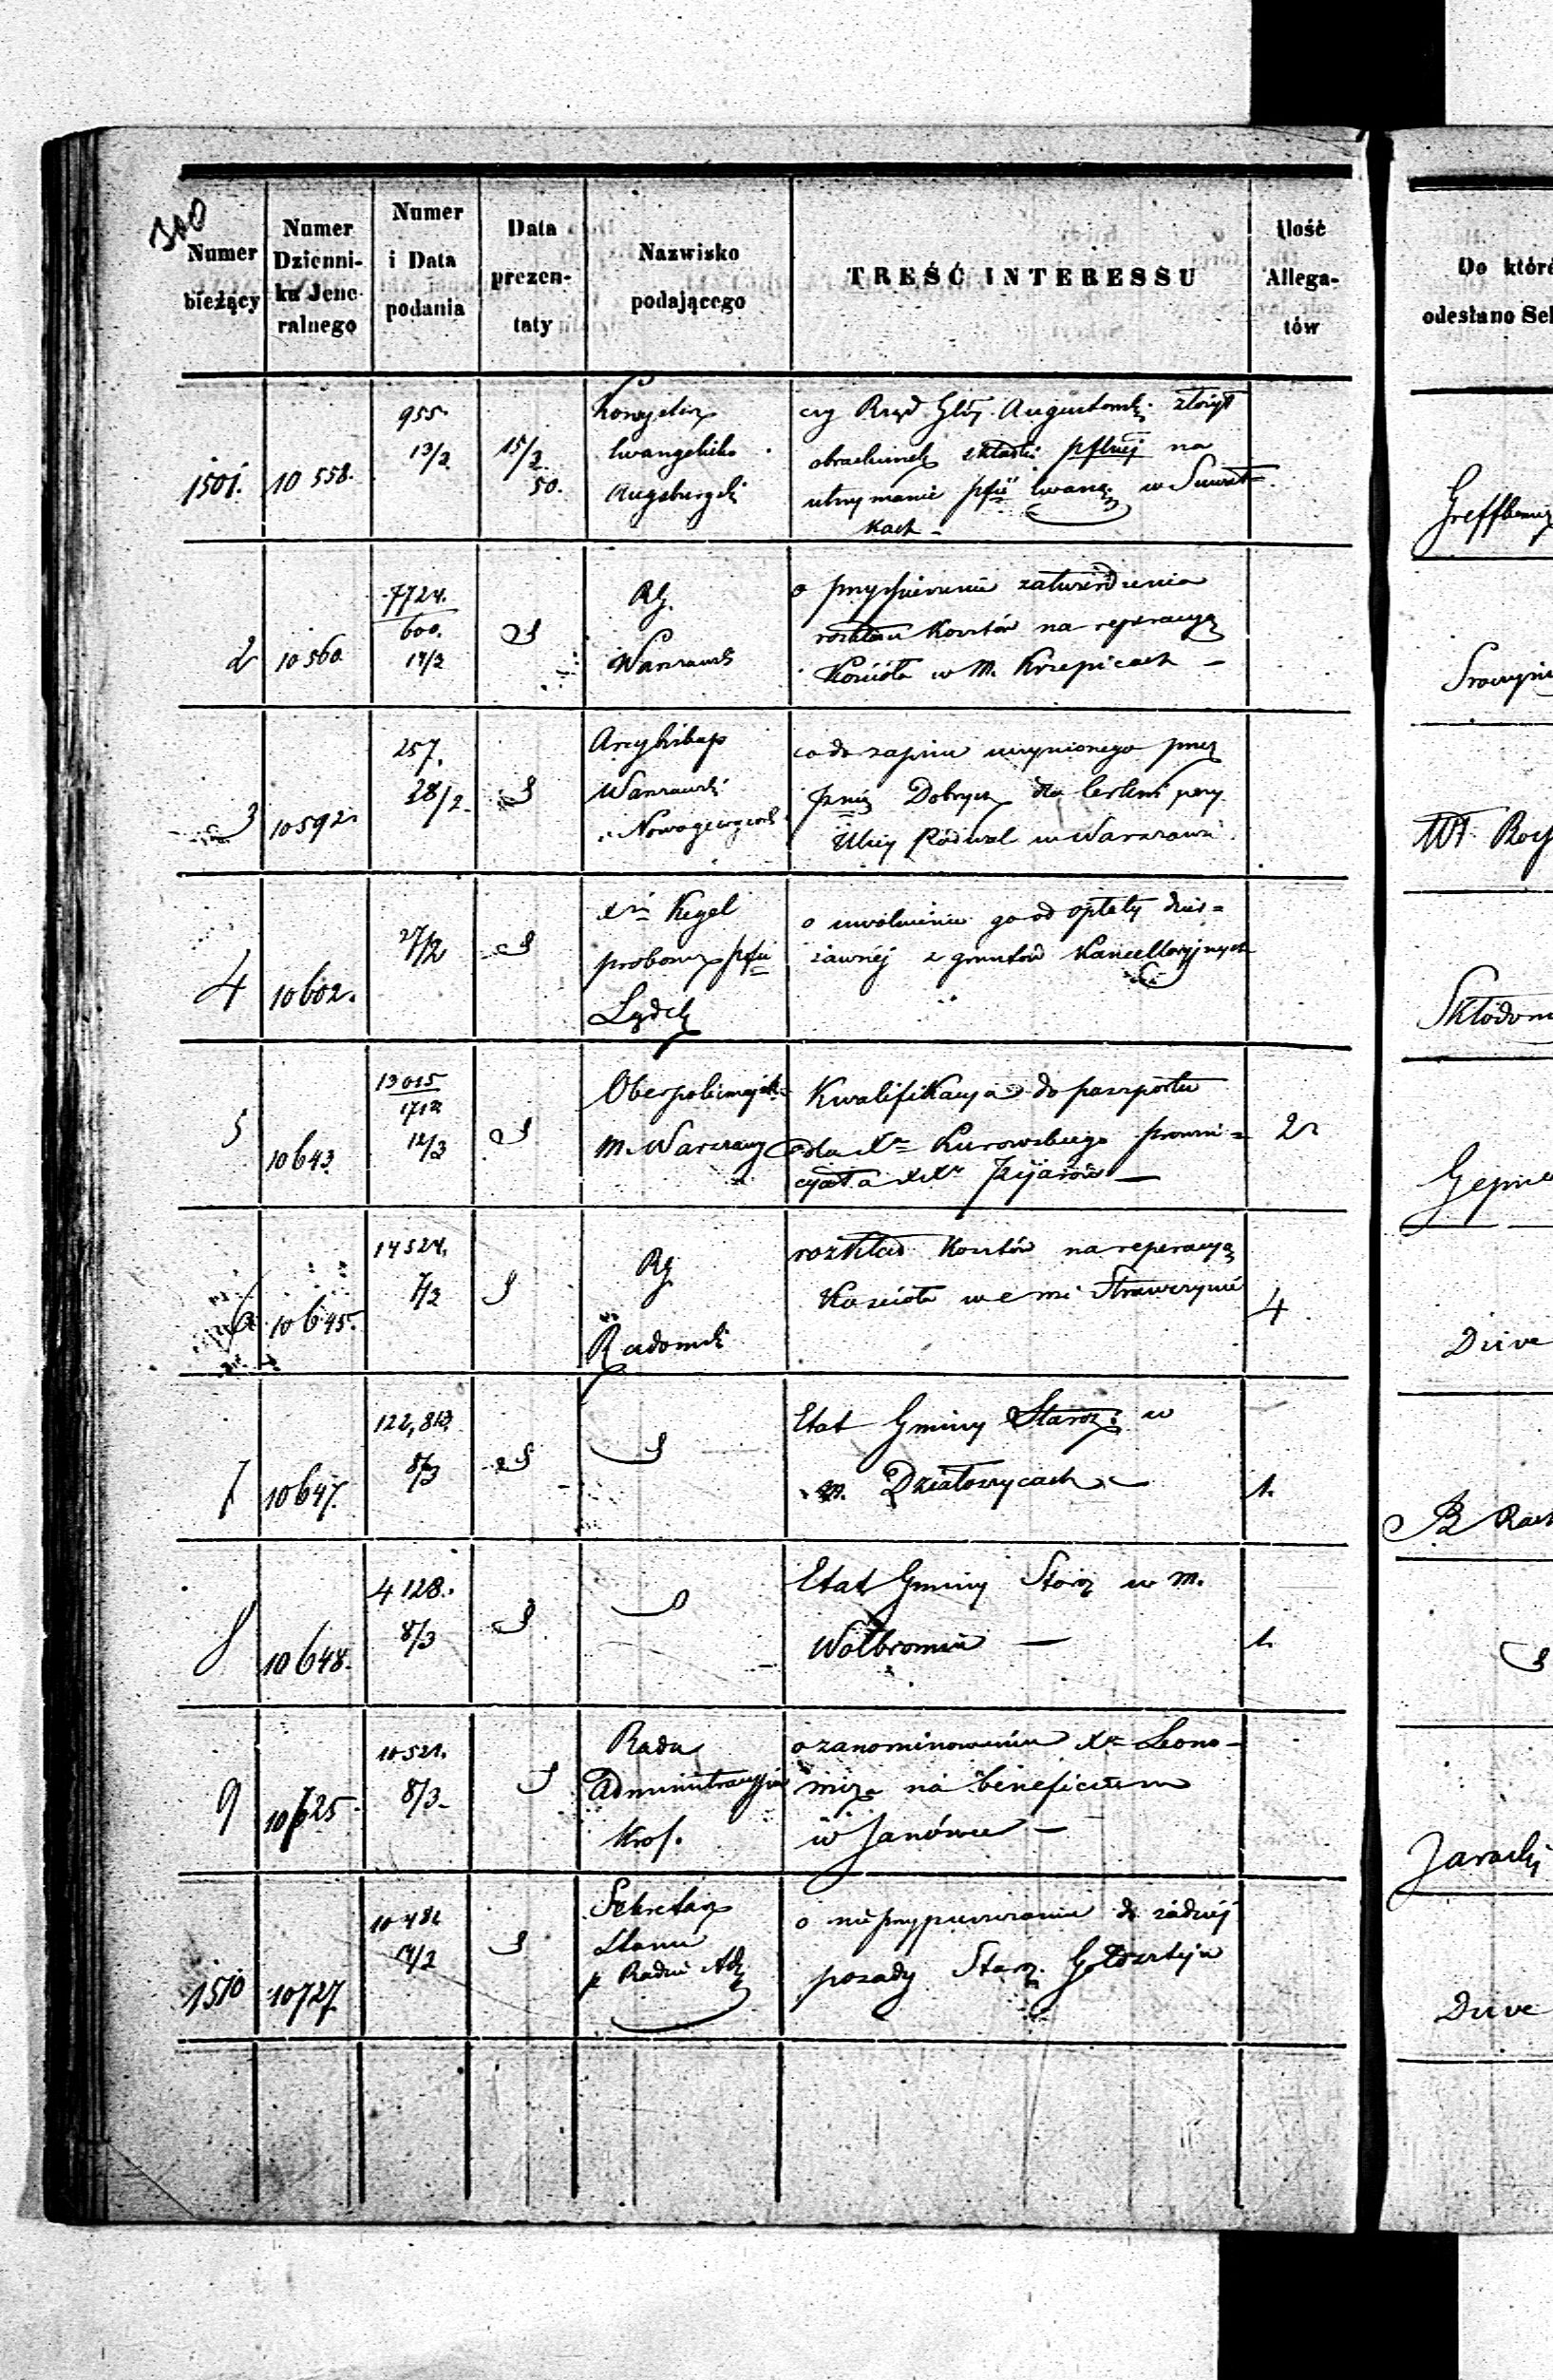 310
Numer bieżący
Numer Dzienni- ka Jene- ralnego
Numer i Data podania
Data prezen- taty
Nazwisko podającego
TREŚĆ INTERESSU
Ilość Allega- tów
Do któr
odesłano Se
1501. 10558. 955. 13/3 15/3 50.
Konsystorz
Ewangelicko
Augsburgski
czy Rząd Gby Augustowski złożył
obrachunek składki pflnej na
utrzymanie pfii Ewang. w Suwał=
kach –
2 10560 7724. 600. 14/3
RG.
Warszawski
o przyspieszenie zatwierdzenia
rozkładu kosztów na reperacyą
Kościoła w M. Krzepicach –
3 10592. 257. 28/2
Arcybiskup
Warszawski
Nowogeorgiewski
co do zapisu uczynionego przez
Dobrycz dla Cerkwi przy
Ulicy Podwal w Warszawie
4 10602. 27/2
Xdz Kegel
proboszcz pfii
Lądek
o uwolnienie go od opłaty dzier=
żawnéj z gruntów Kancellaryjnych
Skłodow
5 10643. 13015 1712 12/3
Oberpolicmajster
M. Warszawy
Kwalifikacya do paszportu
dla Xa Kurowskiego prowin=
cyała XX Pijarów –
2
6 10645. 14524. 7/3
RG
Radomski
rozkład kosztów na reperacyą
Kościoła we wsi Strawczynie
4
Dzive
7 10647. 122,813 8/3
Etat Gminy Staroz: w
m. Działoszycach –
1.
8 10648. 4128. 8/3
Etat Gminy Staroz w M.
Wolbromiu –
1.
9 10725 10521. 8/3
Rada
Administracyjna
Król.
o zanominowaniu Xa Leono-
wicza na beneficium
w Janówce –
1510 10727 10482 14/3
Sekretarz
Stanu
p Radzie Adm
o nieprzypuszczanie do żadnej
posady Staroz. Goldsztejna
Dzive